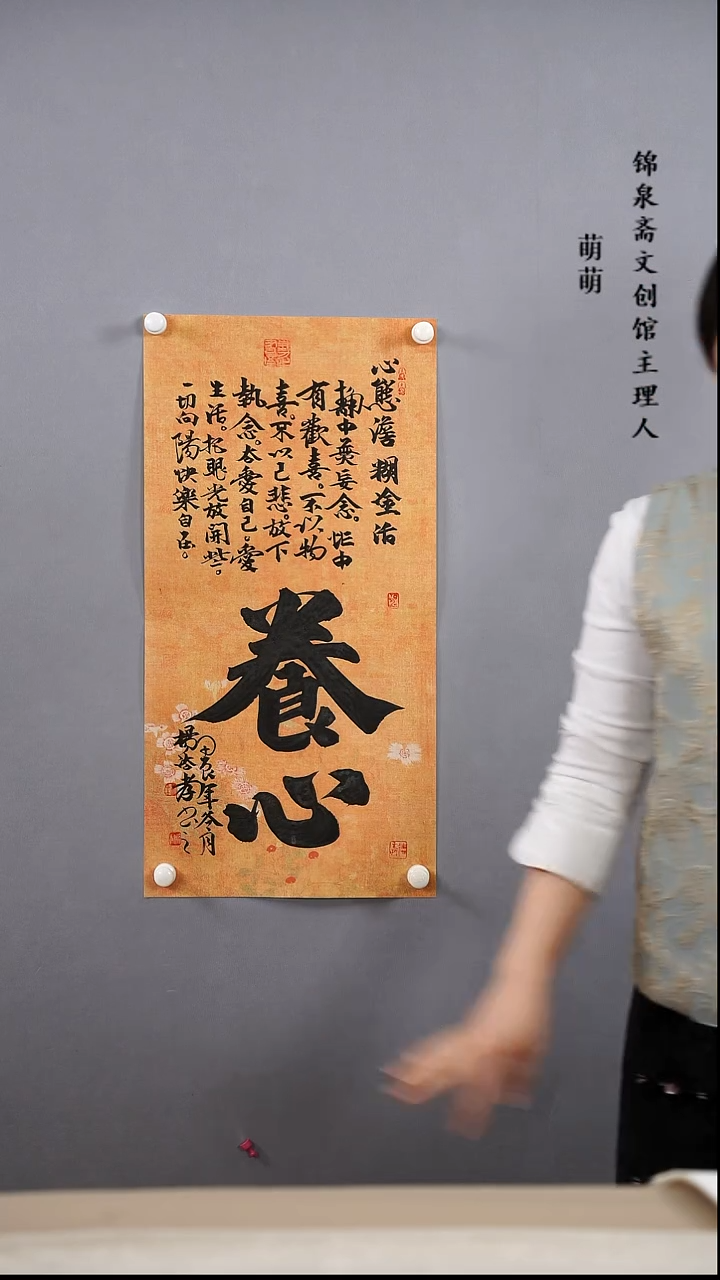 锦泉斋文创馆主理人
萌萌
心態澹糊塗活
静中無妄念。忙中
有歡喜。不以物
喜。不以己悲。放下
執念。去愛自己。愛
生活。把眼光放開些。
一切向陽快樂自在。
養心
甲辰年冬月